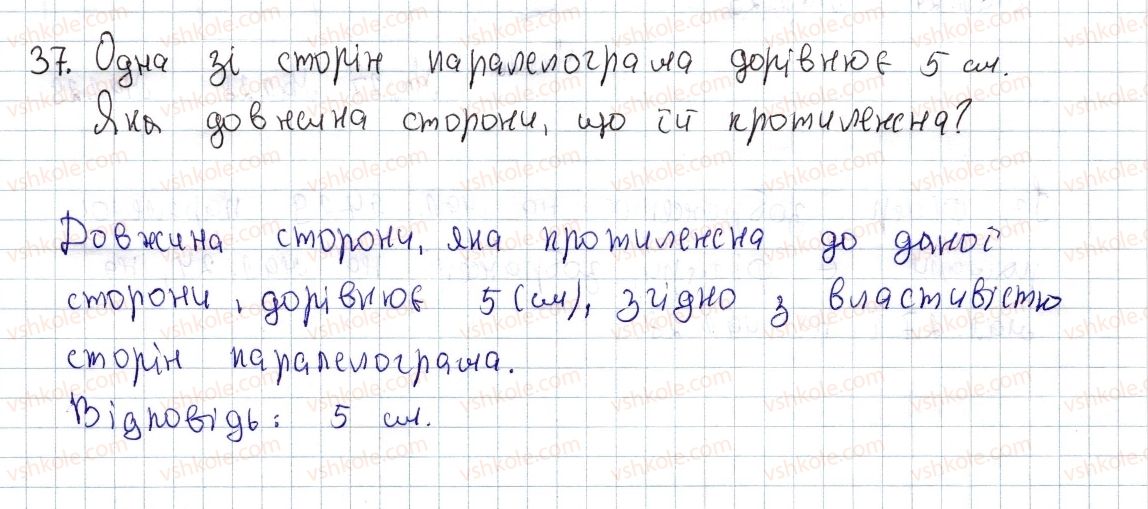 37. Одна зі сторін паралелограма дорівнює 5 см.
Яка довжина сторони, що їй протилежна?
Довжина сторони, яка протилежна до даної
сторони, дорівнює 5 (см), згідно з властивістю
сторін паралелограма.
Відповідь: 5 см.